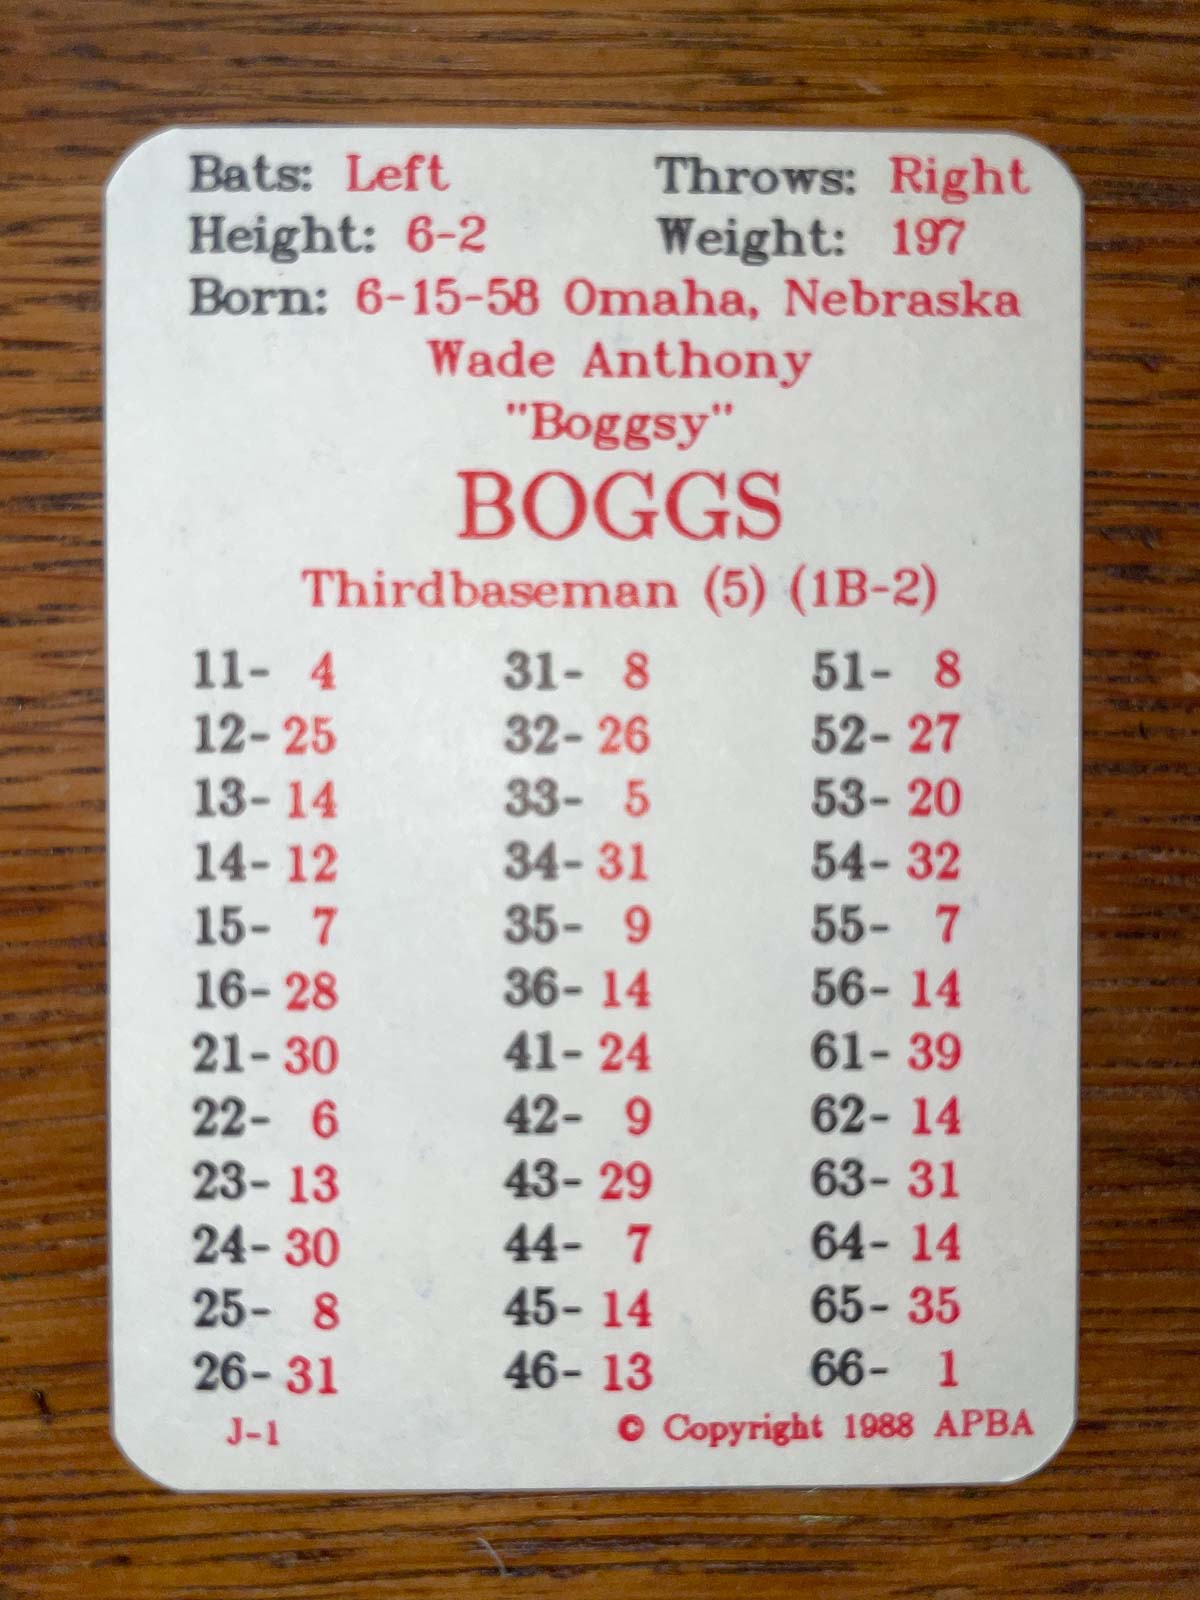 Bats: Left Throws: Right
Height: 6-2 Weight: 197
Born: 6-15-58 Omaha, Nebraska
Wade Anthony
"Boggsy"
BOGGS
Thirdbaseman (5) (1B-2)
11- 4 31- 8 51- 8
12- 25 32- 26 52- 27
13- 14 33- 5 53- 20
14- 12 34- 31 54- 32
15- 7 35- 9 55- 7
16- 28 36- 14 56- 14
21- 30 41- 24 61- 39
22- 6 42- 9 62- 14
23- 13 43- 29 63- 31
24- 30 44- 7 64- 14
25- 8 45- 14 65- 35
26- 31 46- 13 66- 1
J-1 © Copyright 1988 APBA